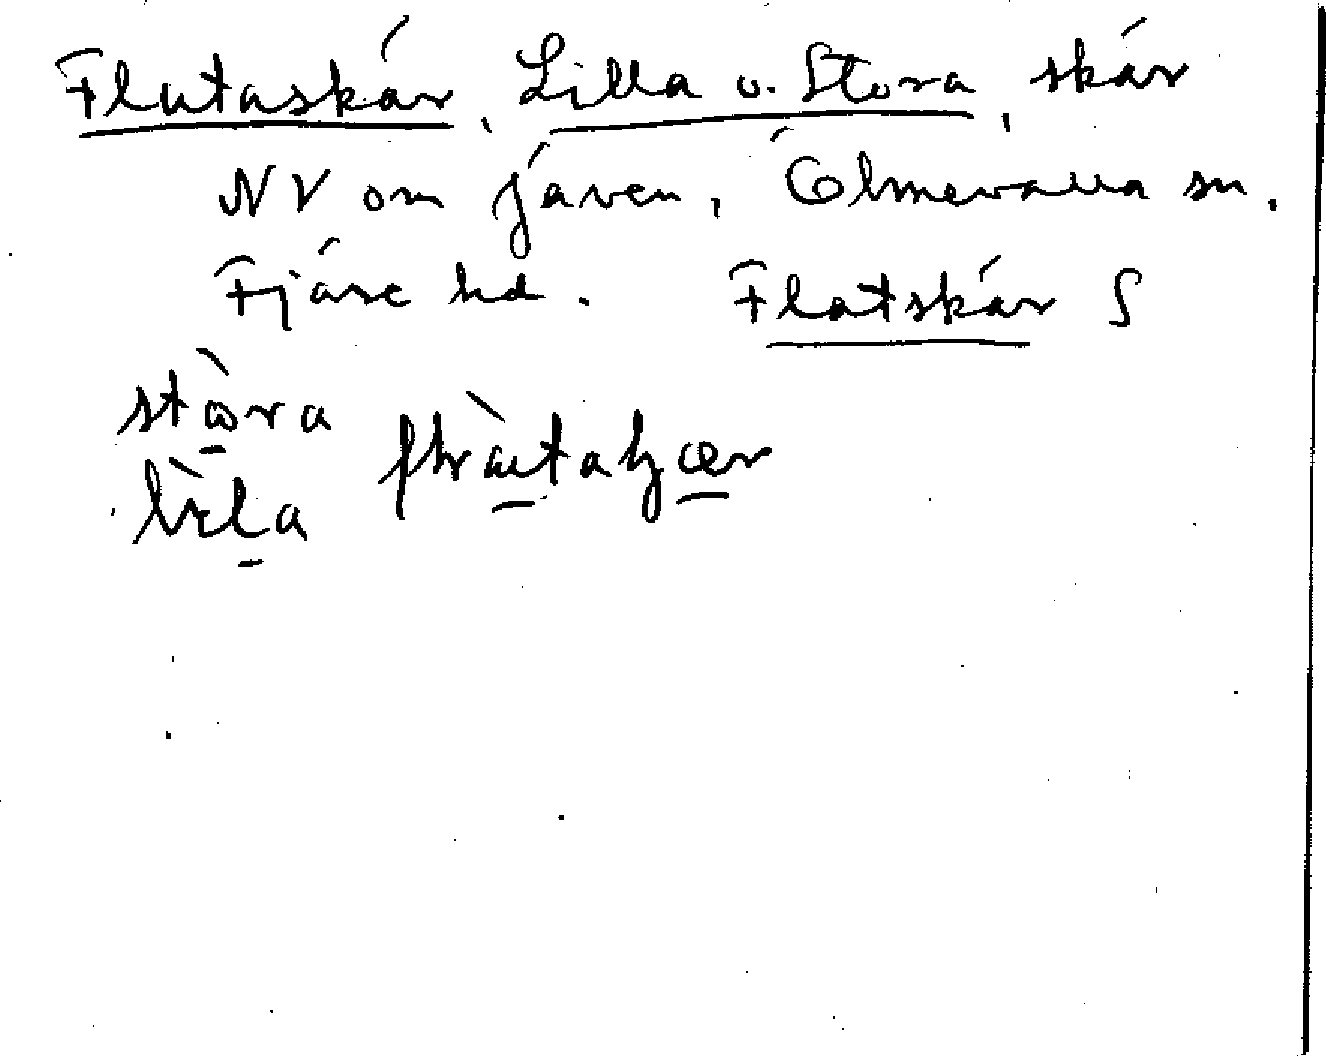 Flataskär, Lilla o. Stora, skär
NV om Jäven, Ölmevalla sn,
Fjäre hd. Flatskär S
stòra
lìla